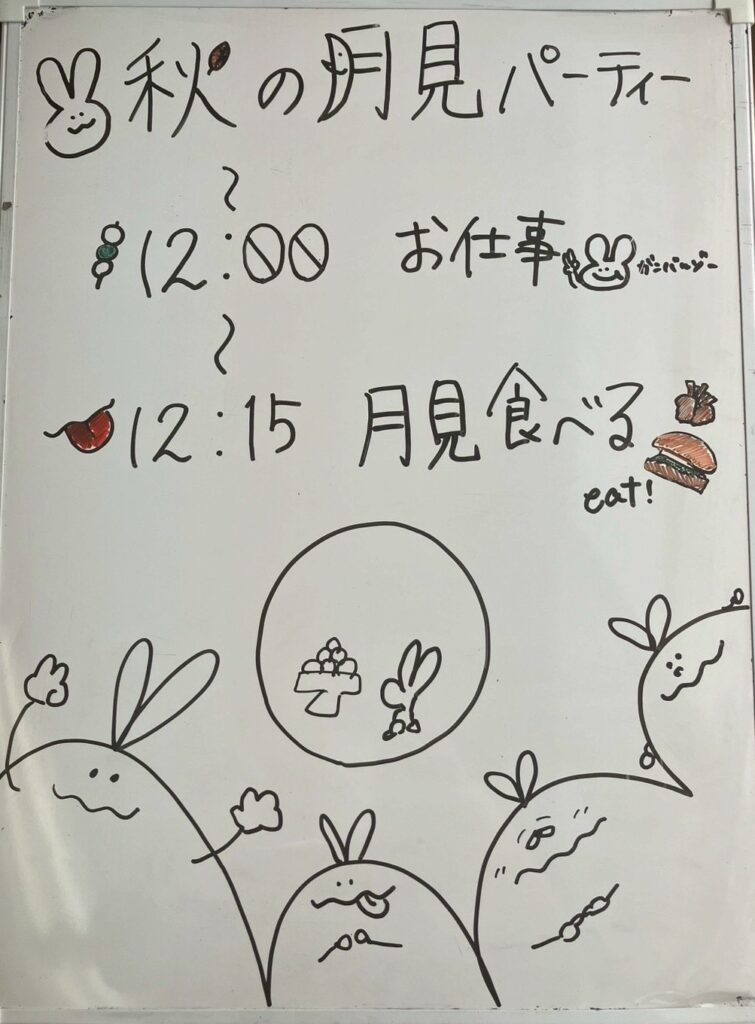 秋の月見パーティー
〜
12:00 お仕事 ガンバルゾー
〜
12:15 月見食べる
eat!